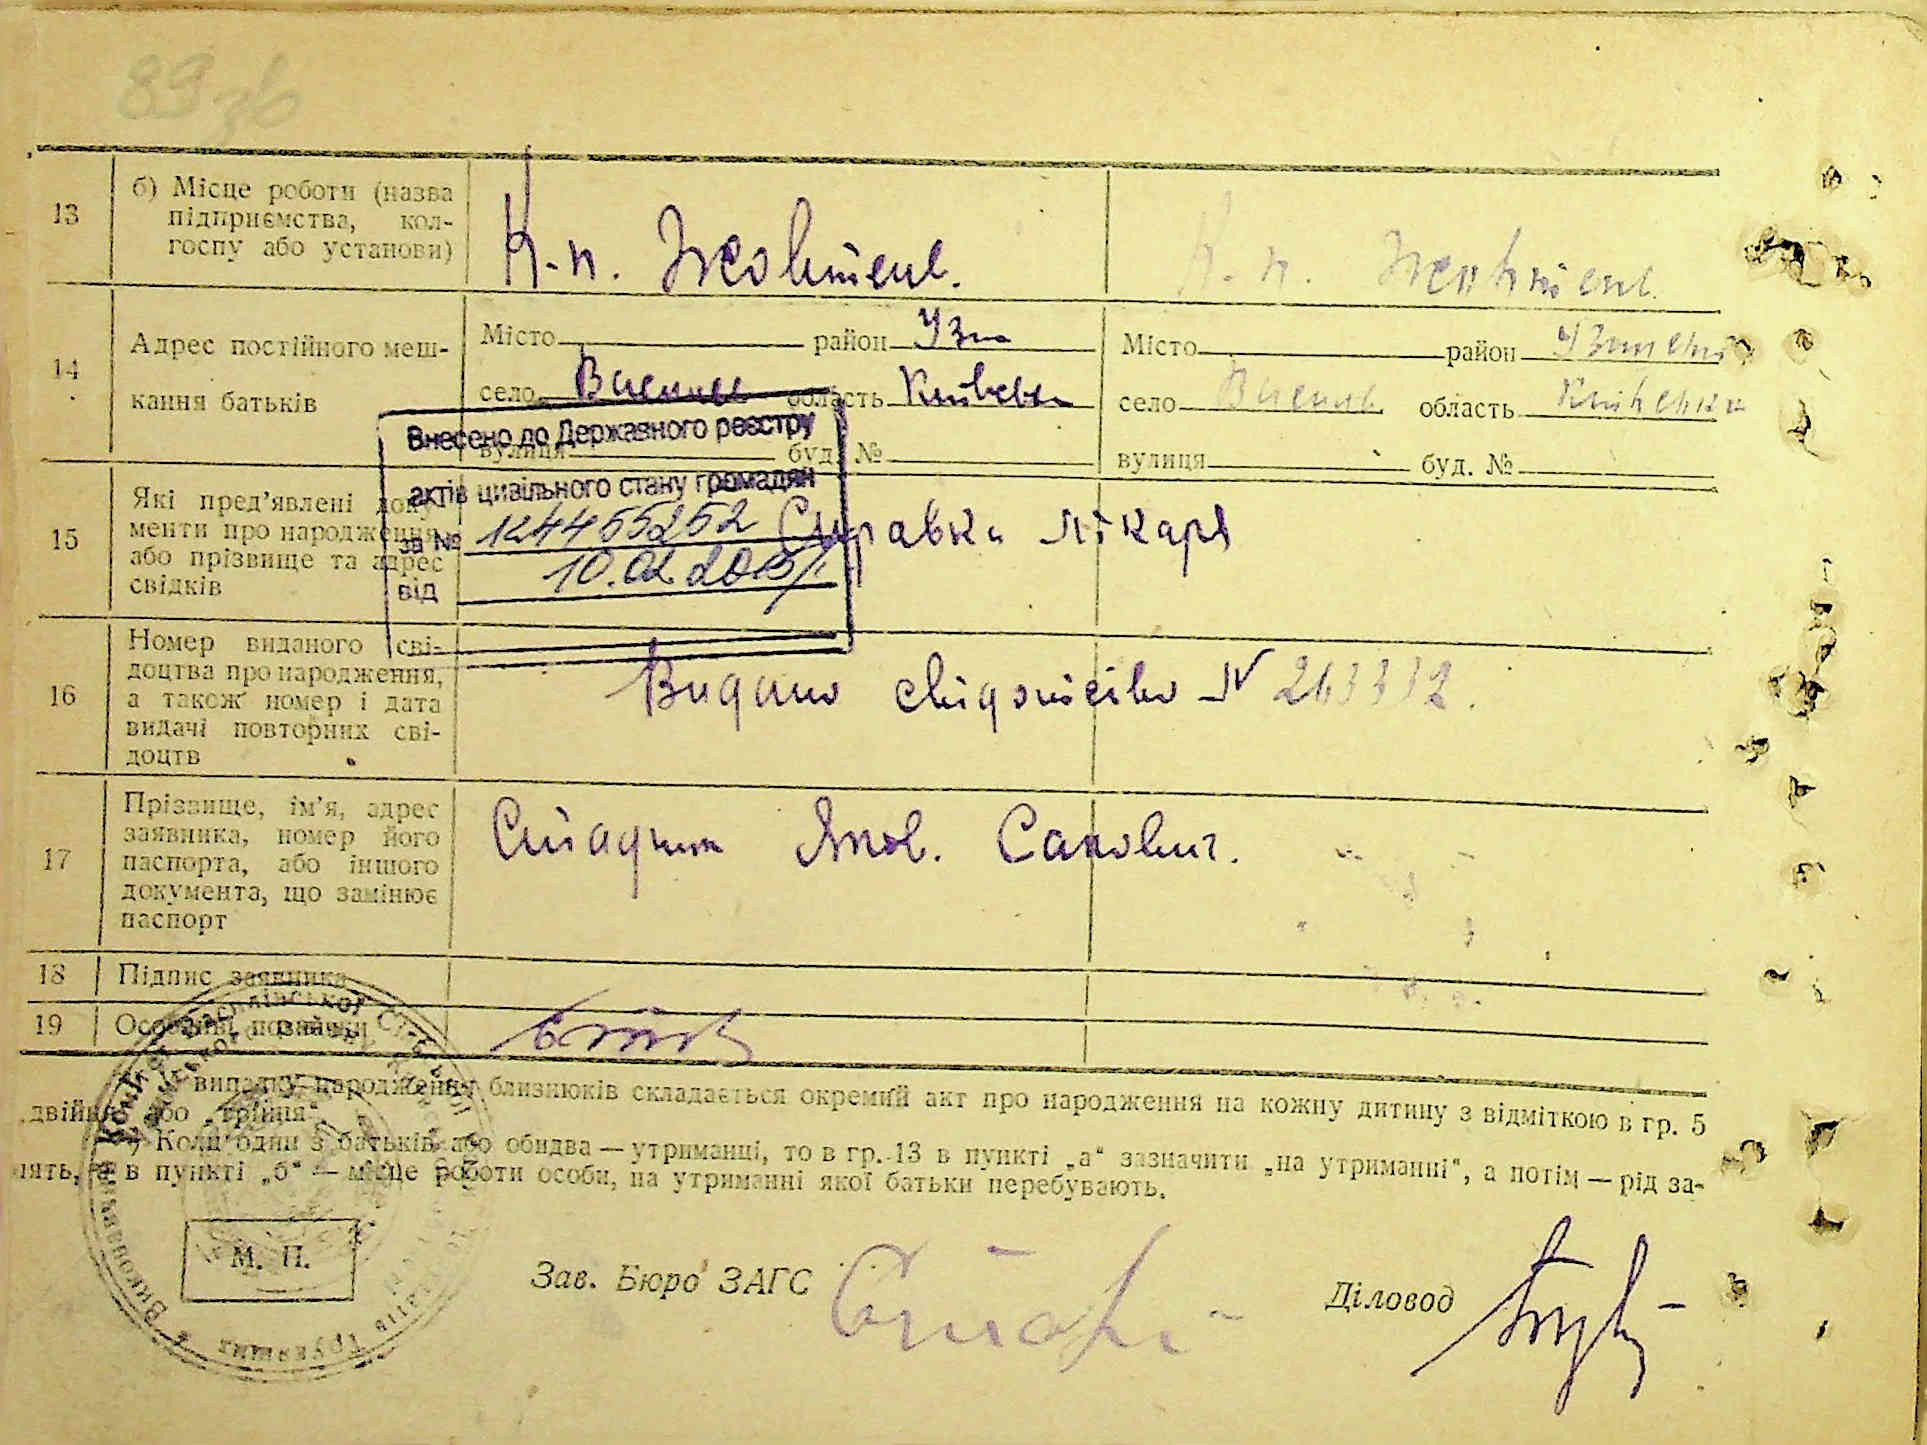 89 зв
13
б) Місце роботи (назва
підприємства, кол-
госпу або установи)
К-п. Жовтень.
К-п. Жовтень.
14
Адрес постійного меш-
кання батьків
Місто район Узин
село Василів область Київська
вулиця буд. №
Місто район Узинськ
село Василів область Київська
вулиця буд. №
Внесено до Державного реєстру
актів цивільного стану громадян
за №
від 10.02.20
15
Які пред’явлені доку-
менти про народження
або прізвище та адрес
свідків
Справка лікаря
16
Номер виданого сві-
доцтва про народження,
а також номер і дата
видачі повторних сві-
доцтв
Видано свідоцтво №
17
Прізвище, ім’я, адрес
заявника, номер його
паспорта, або іншого
документа, що замінює
паспорт
18
Підпис заявника
19
Особливі познач
випадку народження близнюків складається окремий акт про народження на кожну дитину з відміткою в гр. 5
„двійня“ або „трійня“.
) Коли один з батьків або обидва — утриманці, то в гр. 13 в пункті „а“ зазначити „на утриманні“, а потім — рід за-
нять, а в пункті „б“ — місце роботи особи, на утриманні якої батьки перебувають.
М. П.
Зав. Бюро ЗАГС
Діловод